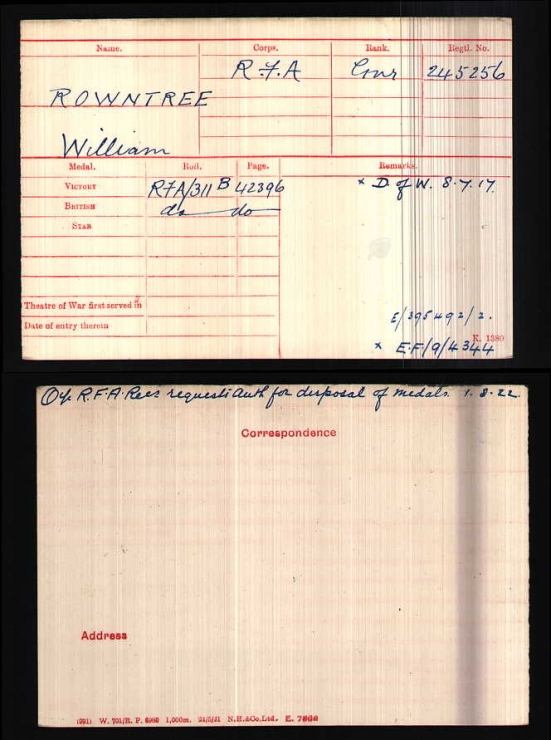 Name. Corps. Rank. Regtl. No.
R.F.A Gnr 245256
ROWNTREE
William
Medal. Roll. Page. Remarks.
VICTORY RFA/311 B 42396 × D. of W. 8.7.17.
BRITISH do do
STAR
Theatre of War first served in
Date of entry therein
E/395492/2.
K. 1380
× E.F/9/4344
O i/c R.F.A. Recs requests auth for disposal of medals. 1.8.22.
Correspondence
Address
W. 1,000m. N.H.&Co.Ltd.